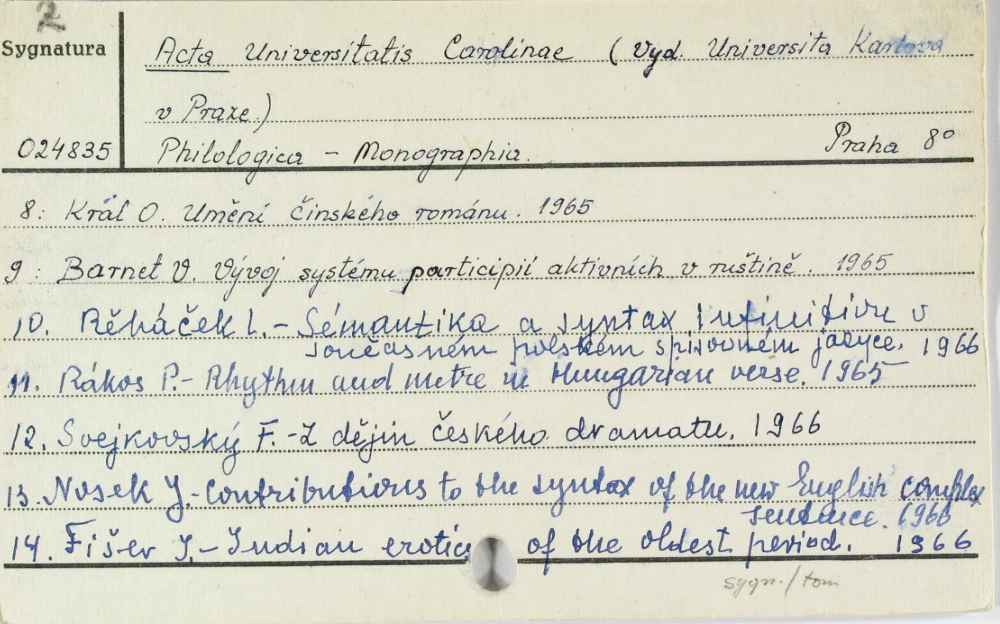 2
Sygnatura
Acta Universitatis Carolinae (Vyd. Universita Karlova
v Praze)
024835
Philologica - Monographia. Praha 8°
8: Král O. Umění čínského románu. 1965
9: Barnet V. Vývoj systému participií aktivních v ruštině. 1965
10. Řěháček L. - Sémantika a syntax infinitivu v
současném polském spisovném jazyce. 1966
11. Rákos P. - Rhythm and metre in Hungarian verse. 1965
12. Svejkovský F. - Z dějin českého dramatu. 1966
13. Nosek J. - Contributions to the syntax of the new English complex
sentence. 1966
14. Fišer J. - Indian erotics of the oldest period. 1966
sygn./tom